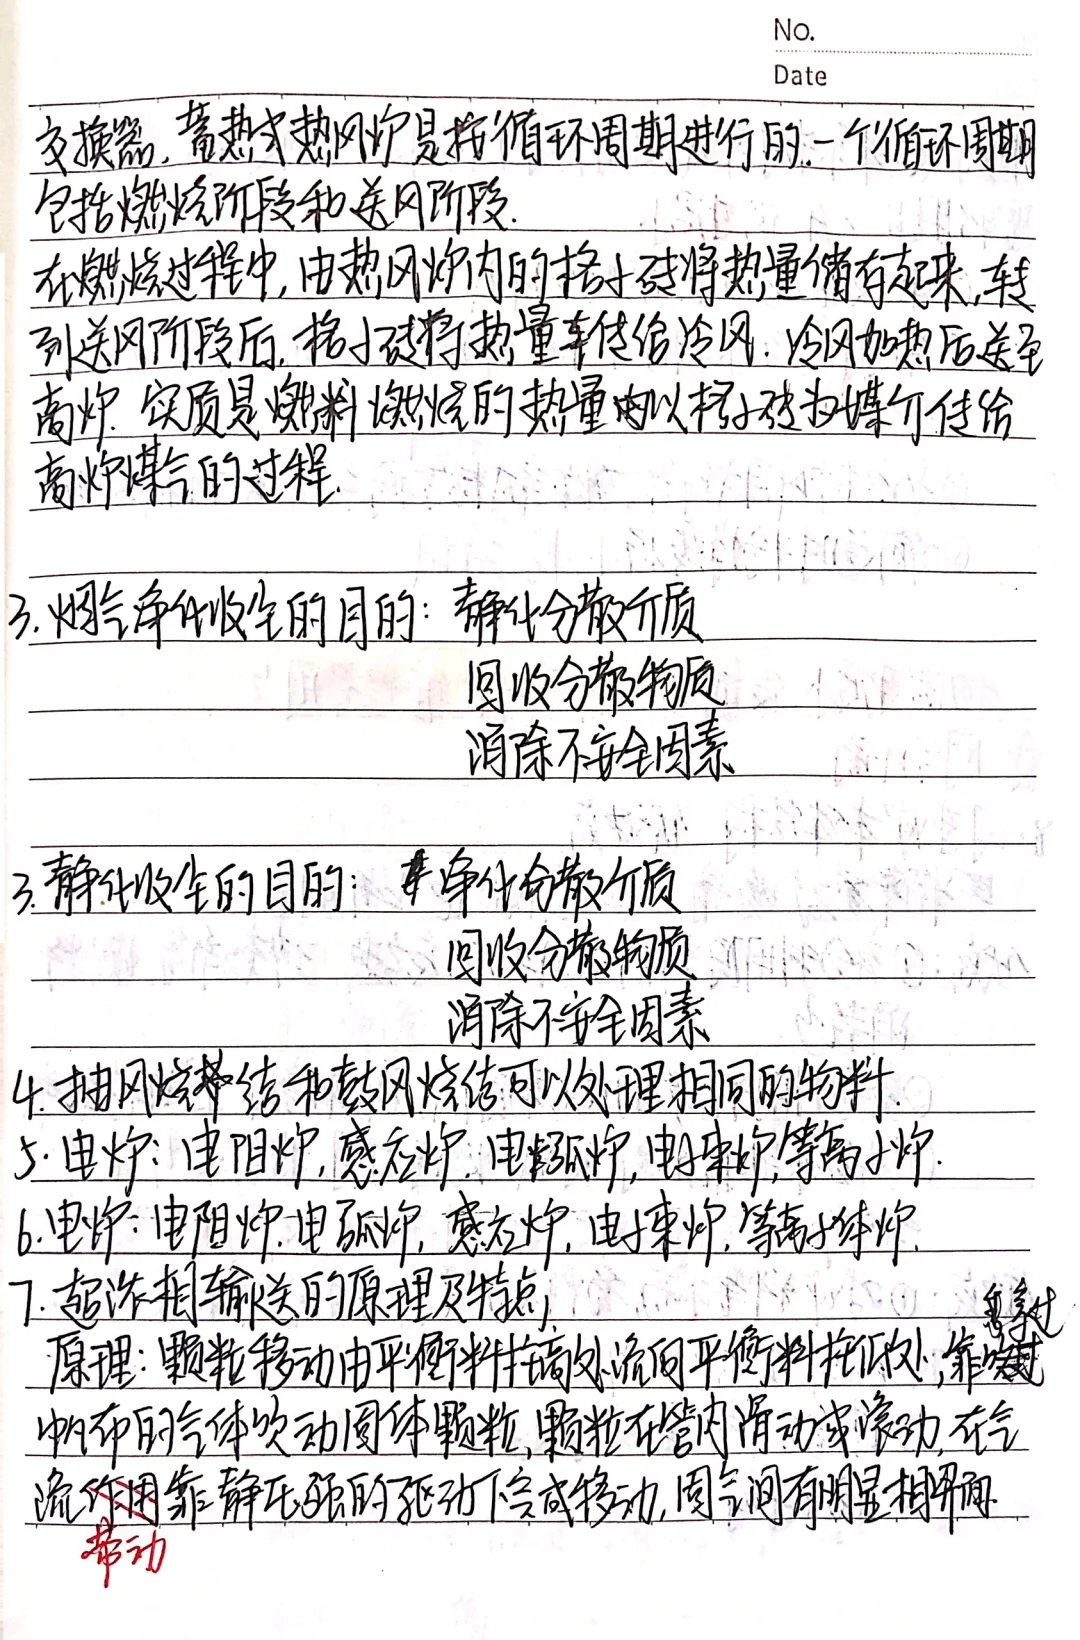 No.
Date
交换器,蓄热式热风炉是按循环周期进行的.一个循环周期
包括燃烧阶段和送风阶段.
在燃烧过程中,由热风炉内的格子砖将热量储存起来,转
到送风阶段后,格子砖将热量传给冷风.冷风加热后送至
高炉.实质是燃料燃烧的热量由以格子砖为媒介传给
高炉煤气的过程.
3.烟气净化收尘的目的:静化分散介质
回收分散物质
消除不安全因素
3.静化收尘的目的:净化分散介质
回收分散物质
消除不安全因素
4.抽风烧结和鼓风烧结可以处理相同的物料.
5.电炉:电阻炉,感应炉.电弧炉,电子束炉,等离子炉.
6.电炉:电阻炉.电弧炉,感应炉,电子束炉,等离子体炉.
7.超浓相输送的原理及特点,
原理:颗粒移动由平衡料柱高处流向平衡料柱低处,靠透过
帆布的气体吹动固体颗粒,颗粒在管内滑动或滚动,在气
流作用靠静压强的驱动下完成移动,固气间有明显相界面.
带动